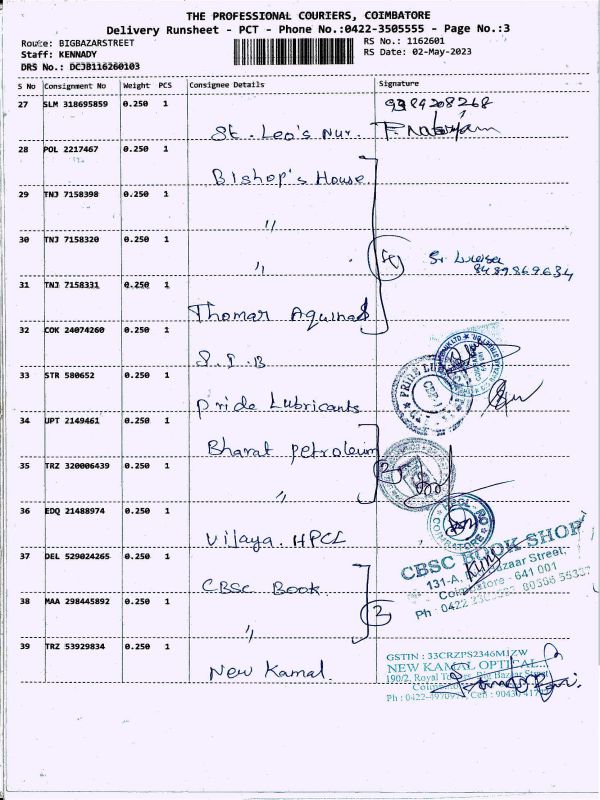 THE PROFESSIONAL COURIERS, COIMBATORE
Delivery Runsheet - PCT - Phone No.:0422-3505555 - Page No.:3
Route: BIGBAZARSTREET
RS No.: 1162601
Staff: KENNADY
RS Date: 02-May-2023
DRS No.: DCJB116260103
S No Consignment No Weight PCS Consignee Details Signature
27 SLM 318695859 0.250 1
9384208268
St. Leo's Nur.
28 POL 2217467 0.250 1
Bishop's House
29 TNJ 7158398 0.250 1
"
30 TNJ 7158320 0.250 1
" 4
8489869634
31 TNJ 7158331 0.250 1
Thomar Aquinas
32 COK 24074260 0.250 1
S.I.B
33 STR 580652 0.250 1
Pride Lubricants
34 UPT 2149461 0.250 1
Bharat Petroleum
35 TRZ 320006439 0.250 1
" 2
36 EDQ 21488974 0.250 1
Vijaya. HPCL
HPCL - RO
COIMBATORE
37 DEL 529024265 0.250 1
CBSC Book
CBSC BOOK SHOP
131-A, Bazaar Street,
Coimbatore - 641 001
38 MAA 298445892 0.250 1
" 2
39 TRZ 53929834 0.250 1
New Kamal.
GSTIN : 33CRZPS2346M1ZW
NEW KAMAL OPTICAL
190/2, Royal Towers, Big Bazaar Street